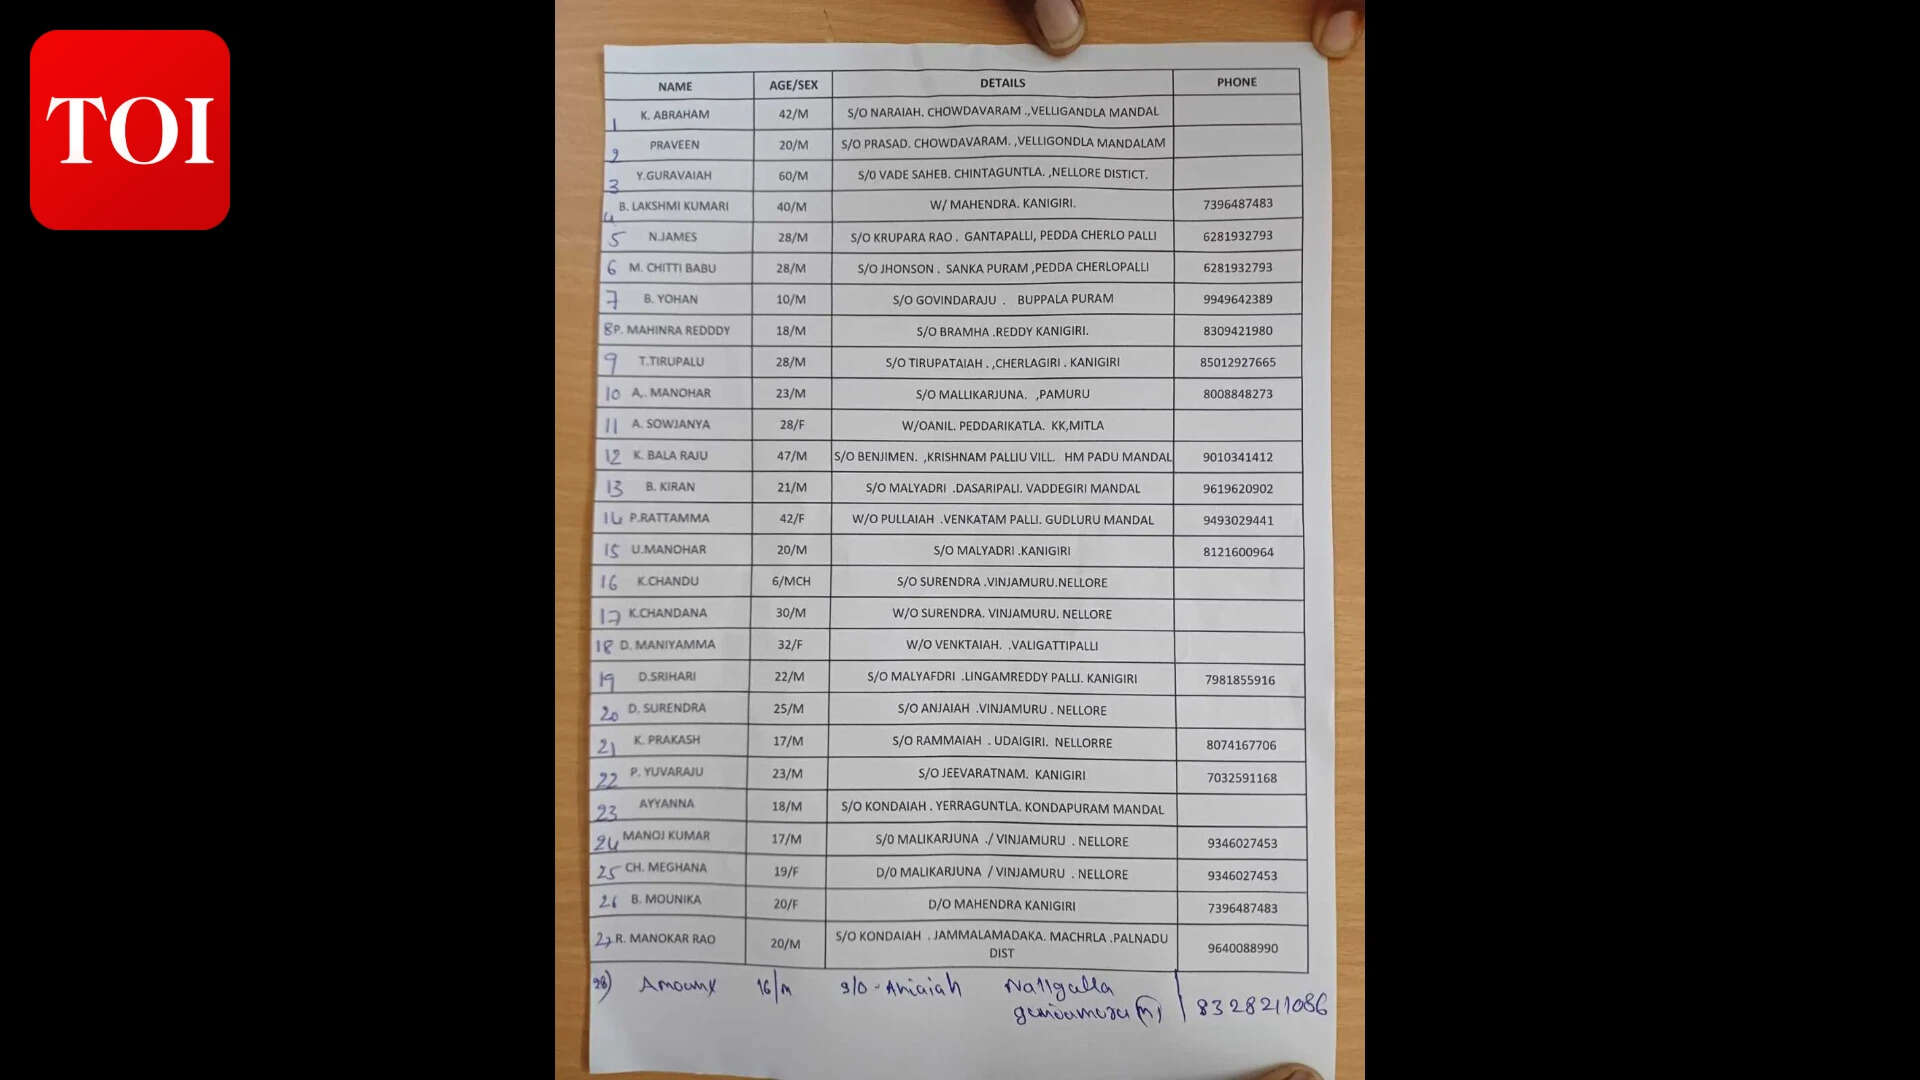 TOI
NAME AGE/SEX DETAILS PHONE
1 K. ABRAHAM 42/M S/O NARAIAH. CHOWDAVARAM .,VELLIGANDLA MANDAL
2 PRAVEEN 20/M S/O PRASAD. CHOWDAVARAM. ,VELLIGONDLA MANDALAM
3 Y.GURAVAIAH 60/M S/0 VADE SAHEB. CHINTAGUNTLA. ,NELLORE DISTICT.
4 B. LAKSHMI KUMARI 40/M W/ MAHENDRA. KANIGIRI. 7396487483
5 N.JAMES 28/M S/O KRUPARA RAO . GANTAPALLI, PEDDA CHERLO PALLI 6281932793
6 M. CHITTI BABU 28/M S/O JHONSON . SANKA PURAM ,PEDDA CHERLOPALLI 6281932793
7 B. YOHAN 10/M S/O GOVINDARAJU . BUPPALA PURAM 9949642389
8 P. MAHINRA REDDDY 18/M S/O BRAMHA .REDDY KANIGIRI. 8309421980
9 T.TIRUPALU 28/M S/O TIRUPATAIAH . ,CHERLAGIRI . KANIGIRI 85012927665
10 A,. MANOHAR 23/M S/O MALLIKARJUNA. ,PAMURU 8008848273
11 A. SOWJANYA 28/F W/OANIL. PEDDARIKATLA. KK,MITLA
12 K. BALA RAJU 47/M S/O BENJIMEN. ,KRISHNAM PALLIU VILL. HM PADU MANDAL 9010341412
13 B. KIRAN 21/M S/O MALYADRI .DASARIPALI. VADDEGIRI MANDAL 9619620902
14 P.RATTAMMA 42/F W/O PULLAIAH .VENKATAM PALLI. GUDLURU MANDAL 9493029441
15 U.MANOHAR 20/M S/O MALYADRI .KANIGIRI 8121600964
16 K.CHANDU 6/MCH S/O SURENDRA .VINJAMURU.NELLORE
17 K.CHANDANA 30/M W/O SURENDRA. VINJAMURU. NELLORE
18 D. MANIYAMMA 32/F W/O VENKTAIAH. .VALIGATTIPALLI
19 D.SRIHARI 22/M S/O MALYAFDRI .LINGAMREDDY PALLI. KANIGIRI 7981855916
20 D. SURENDRA 25/M S/O ANJAIAH .VINJAMURU . NELLORE
21 K. PRAKASH 17/M S/O RAMMAIAH . UDAIGIRI. NELLORRE 8074167706
22 P. YUVARAJU 23/M S/O JEEVARATNAM. KANIGIRI 7032591168
23 AYYANNA 18/M S/O KONDAIAH . YERRAGUNTLA. KONDAPURAM MANDAL
24 MANOJ KUMAR 17/M S/0 MALIKARJUNA ./ VINJAMURU . NELLORE 9346027453
25 CH. MEGHANA 19/F D/0 MALIKARJUNA / VINJAMURU . NELLORE 9346027453
26 B. MOUNIKA 20/F D/O MAHENDRA KANIGIRI 7396487483
27 R. MANOKAR RAO 20/M S/O KONDAIAH . JAMMALAMADAKA. MACHRLA .PALNADU
DIST 9640088990
28) 16/M S/O - Nallgalla
(M) 8328211086